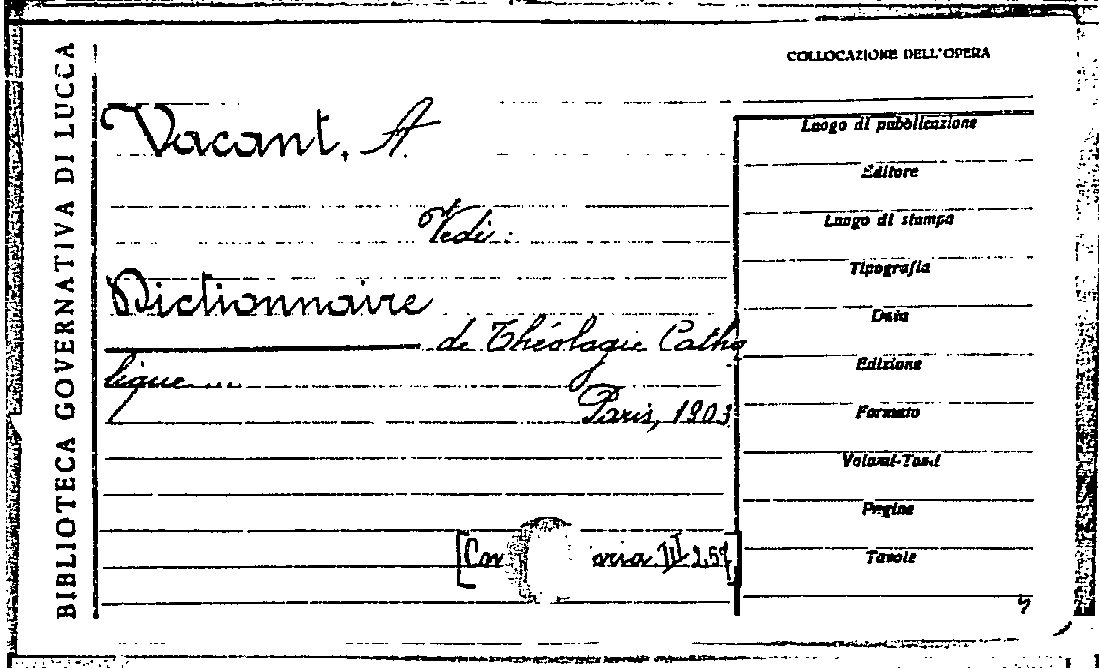 BIBLIOTECA GOVERNATIVA DI LUCCA
COLLOCAZIONE DELL'OPERA
Vacant, A.
Vedi:
Dictionnaire
de Théologie Catho
lique...
Paris, 1903
Luogo di pubblicazione
Editore
Luogo di stampa
Tipografia
Data
Edizione
Formato
Volumi-Tomi
Pagine
Tavole